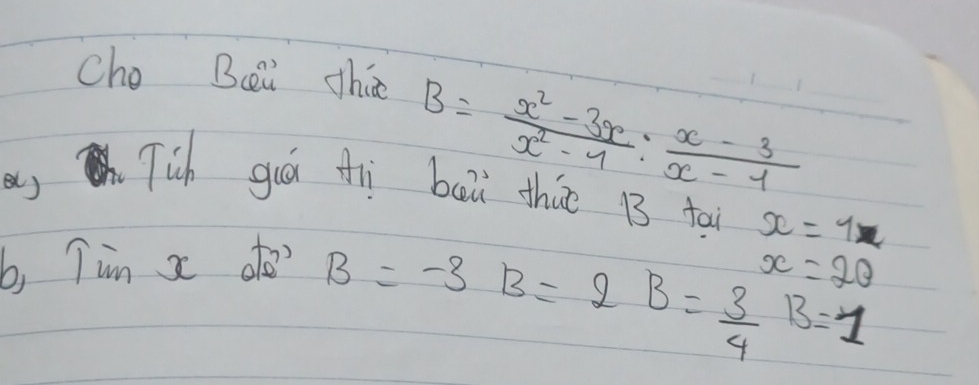 Cho Biểu thức B = \frac{x^2 - 3x}{x^2 - 1} : \frac{x - 3}{x - 1}
a) Tính giá trị biểu thức B tại x = 1
x = 20
b, Tìm x để B = -3 B = 2 B = \frac{3}{4} B = 1